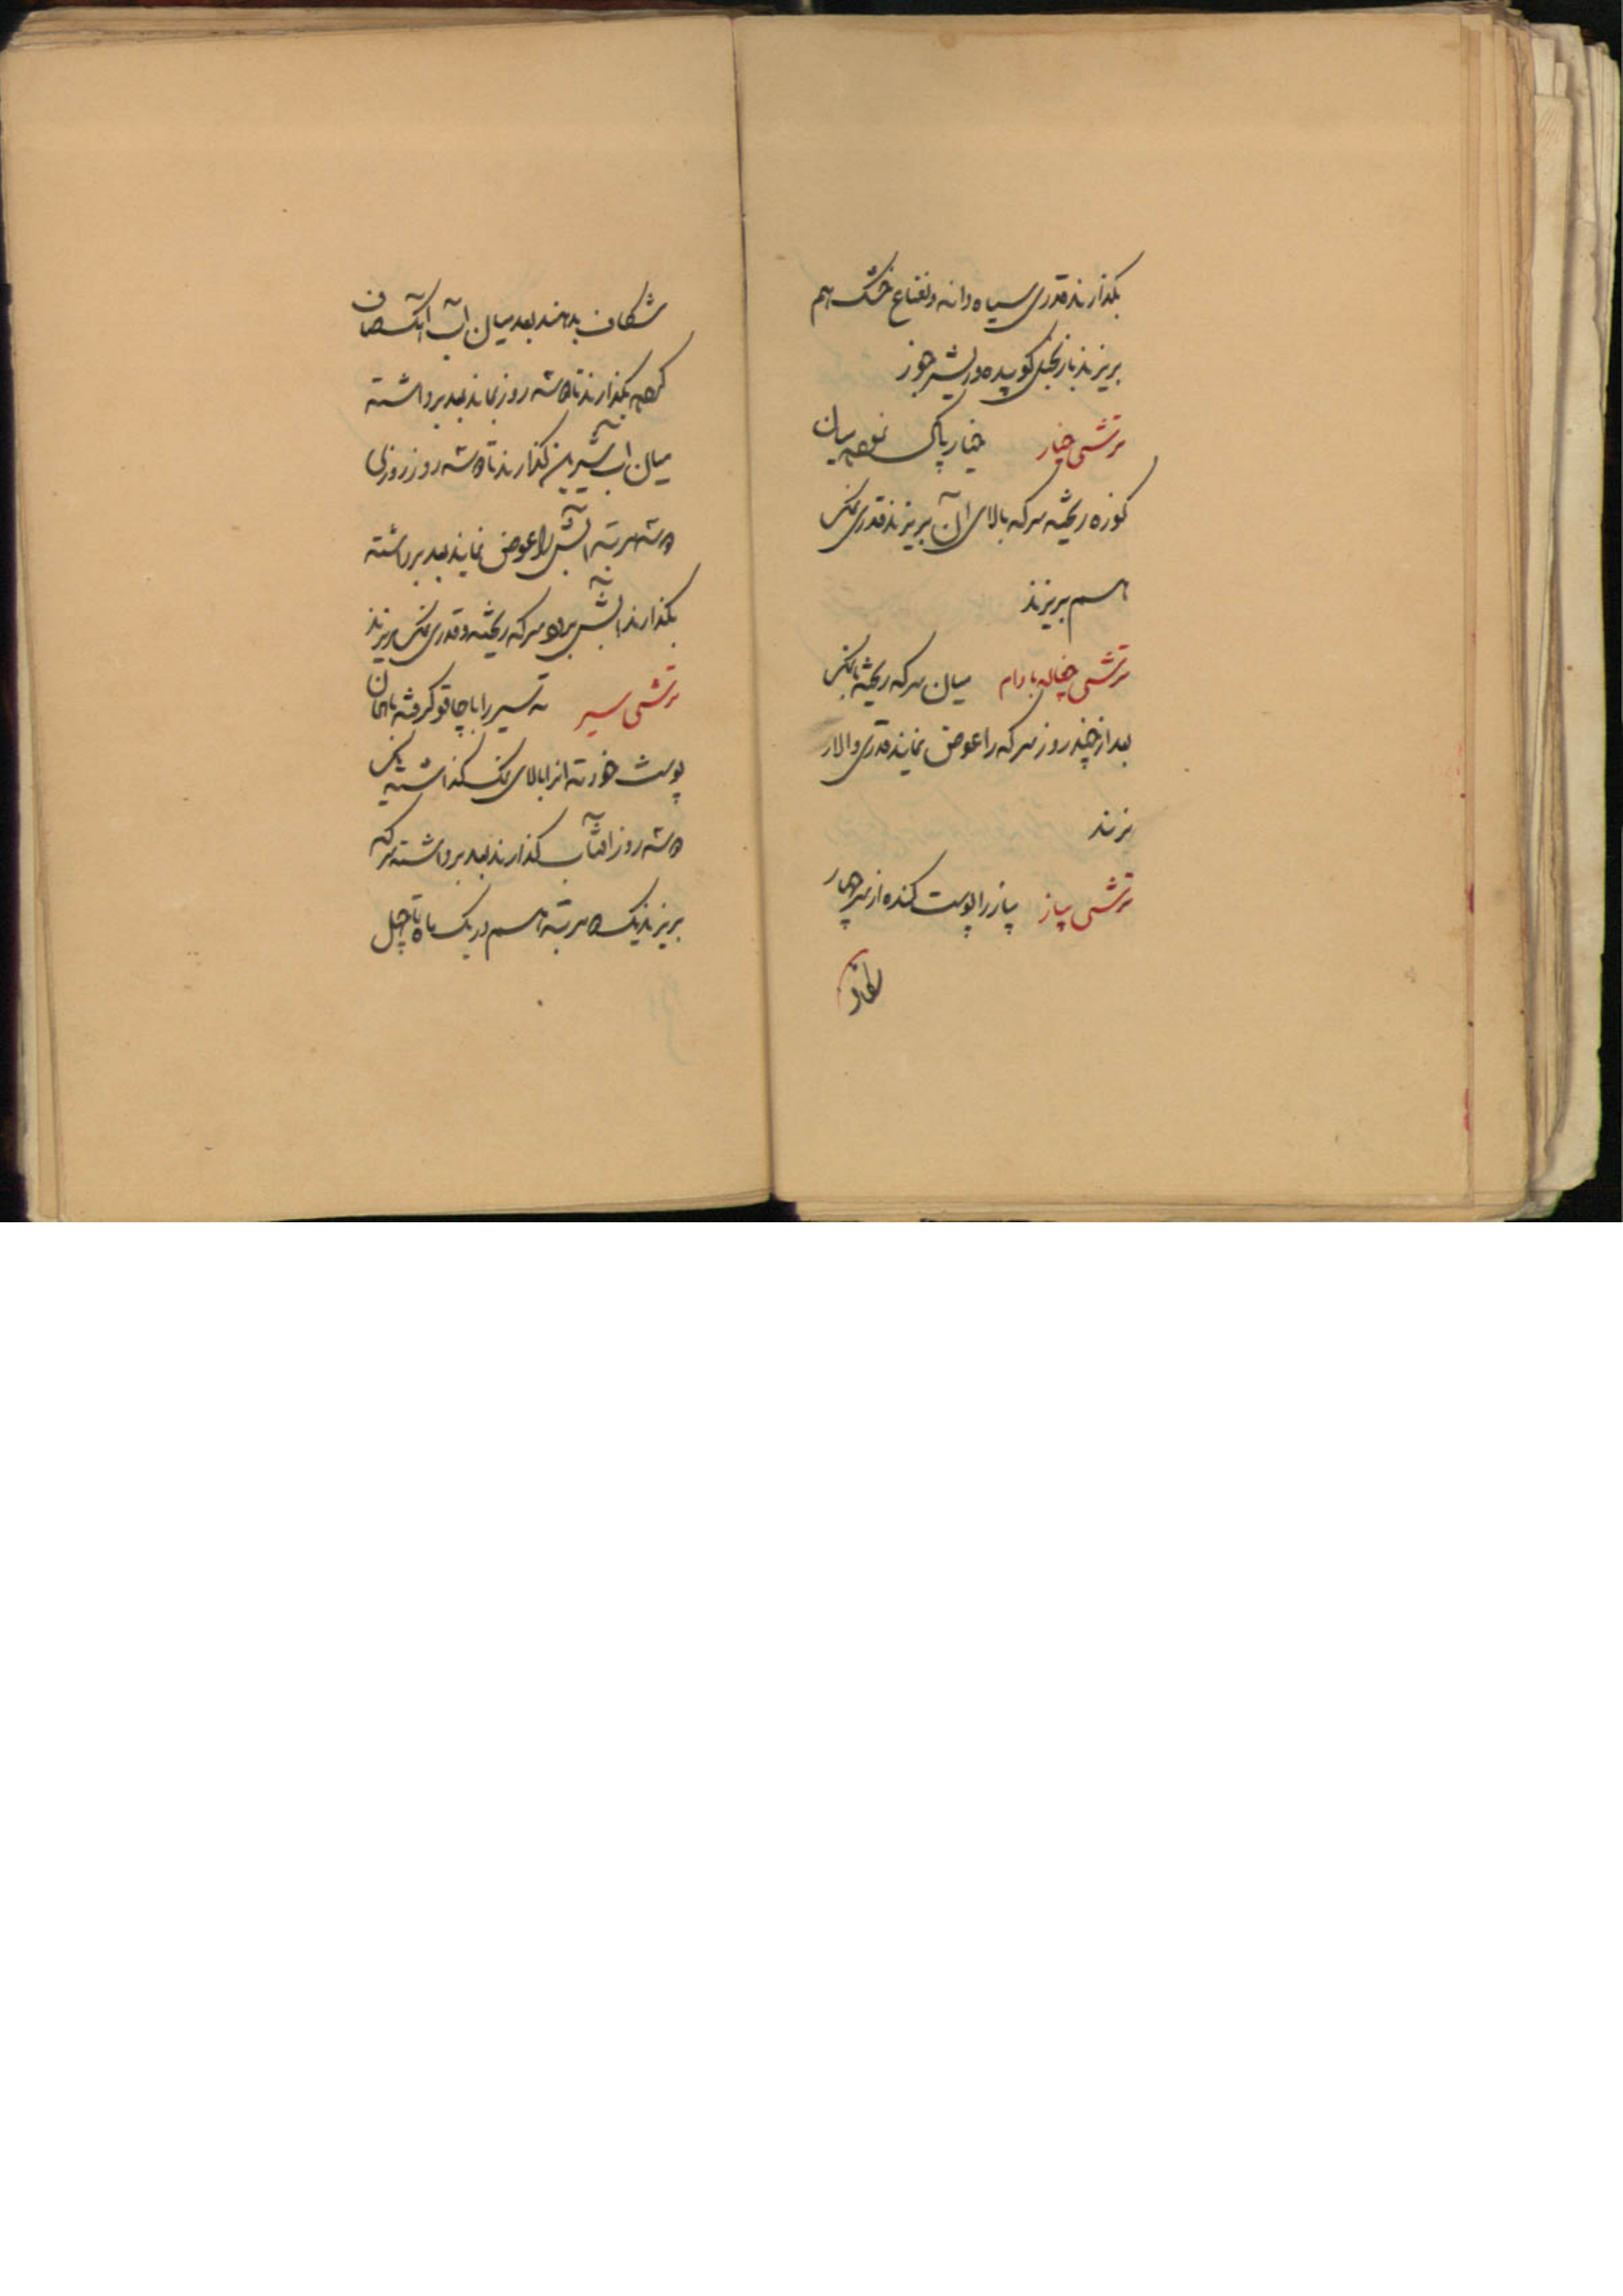 بگذارند قدری سیاه دانه و نعناع خشک هم
بریزند با زنجبیل کوبیده و ریشه جوز
ترشی خیار خیار پاک نموده میان
کوزه ریخته سرکه بالای آن بریزند قدری نمک
هم بریزند
ترشی چغاله بادام میان سرکه ریخته با نمک
بعد از چند روز سرکه را عوض نمایند قدری والار
بزنند
ترشی پیاز پیاز را پوست کنده از سر چهار
شکاف
شکاف بدهند بعد میان آب آهک صاف
کرده بگذارند تا دو سه روز بماند بعد برداشته
میان آب شیرین گذارند تا دو سه روز روزی
دو سه مرتبه آبش را عوض نمایند بعد برداشته
بگذارند آبش برود سرکه ریخته و قدری نمک بریزند
ترشی سیر ته سیر را با چاقو گرفته با همان
پوست خود ته آنرا بالای نمک گذاشته یک
دو سه روز آفتاب گذارند بعد برداشته سرکه
بریزند یک دو مرتبه هم در یک ماه تا چهل